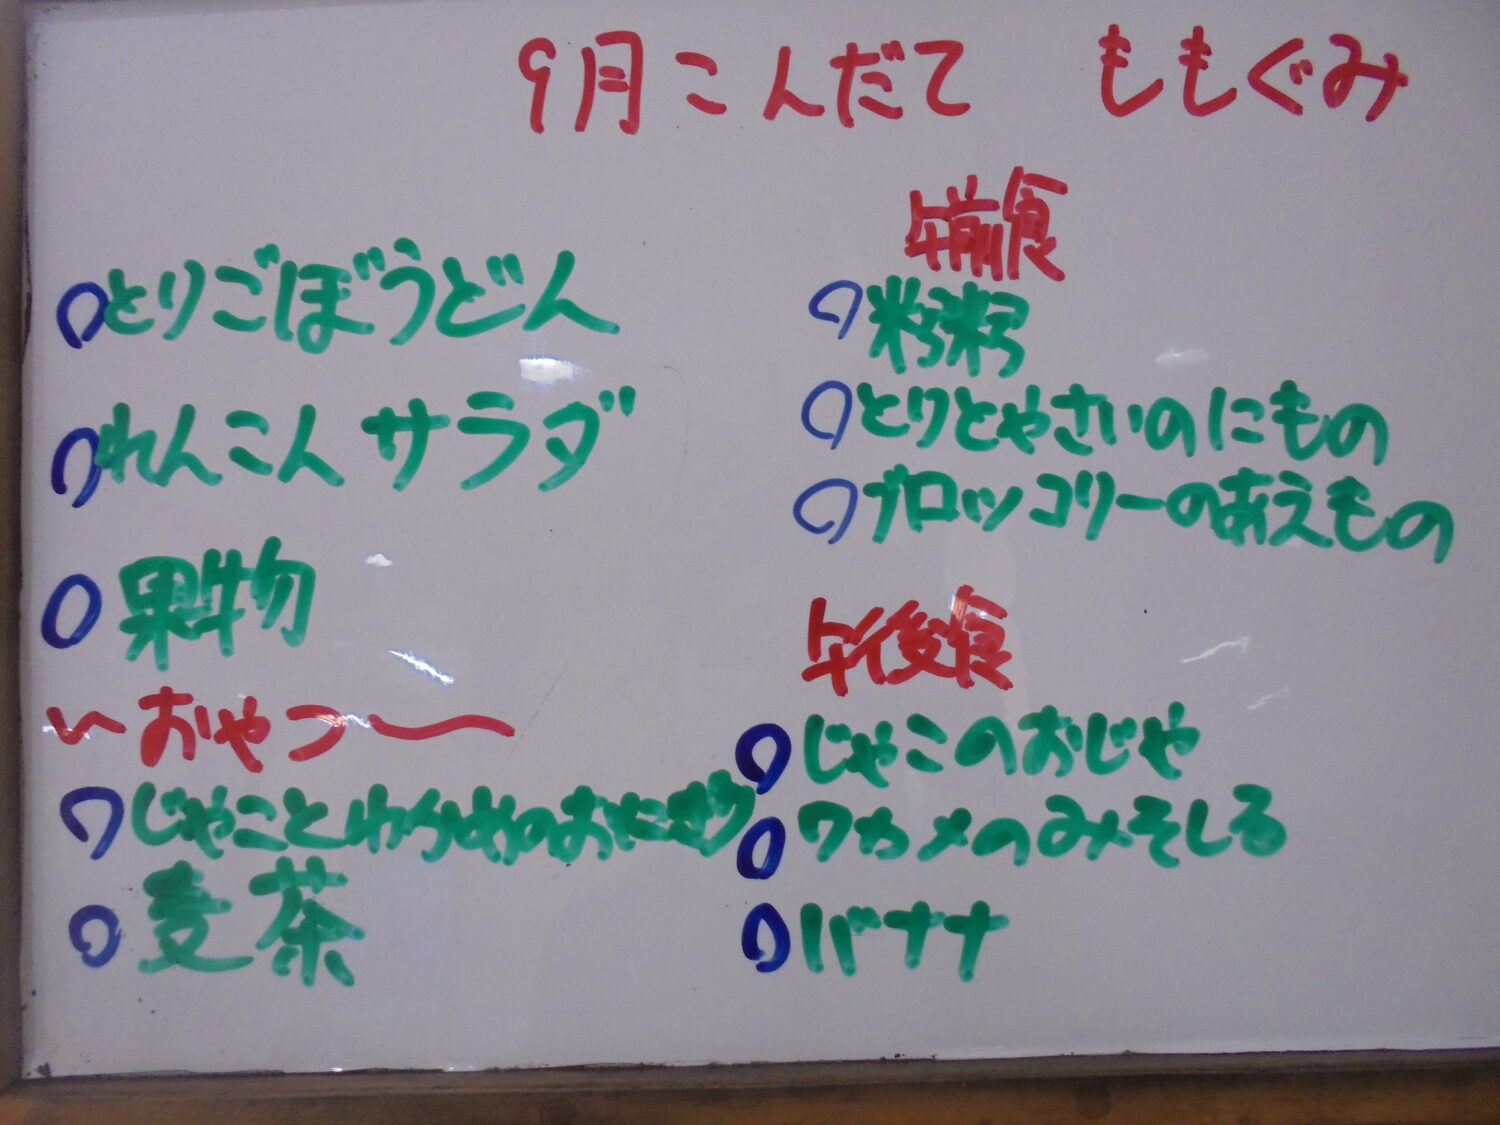 9月こんだて ももぐみ
とりごぼうどん
れんこんサラダ
果物
〜おやつ〜
じゃことわかめのおにぎり
麦茶
午前食
とりとやさいのにもの
ブロッコリーのあえもの
午後食
じゃこのおじや
ワカメのみそしる
バナナ